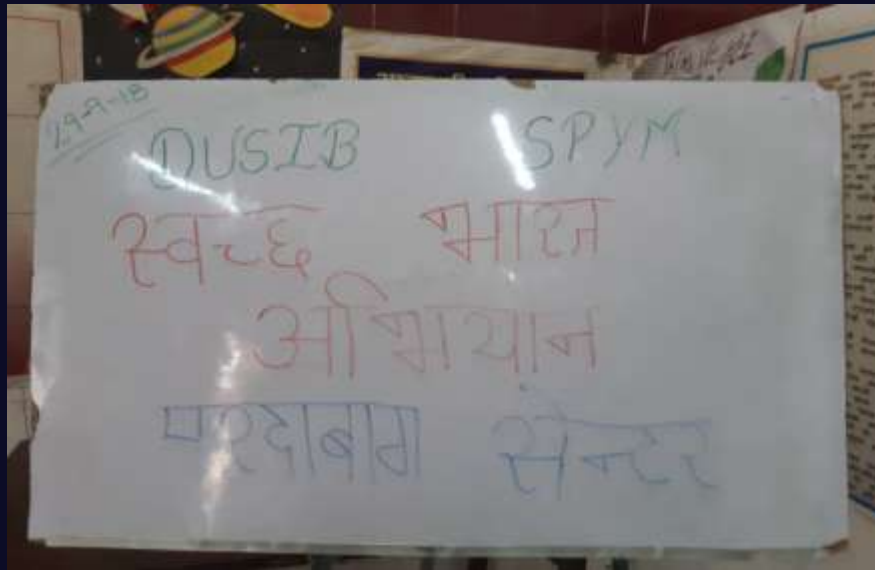 29-9-18
DUSIB SPYM
स्वच्छ भारत
अभियान
परदाबाग सेन्टर